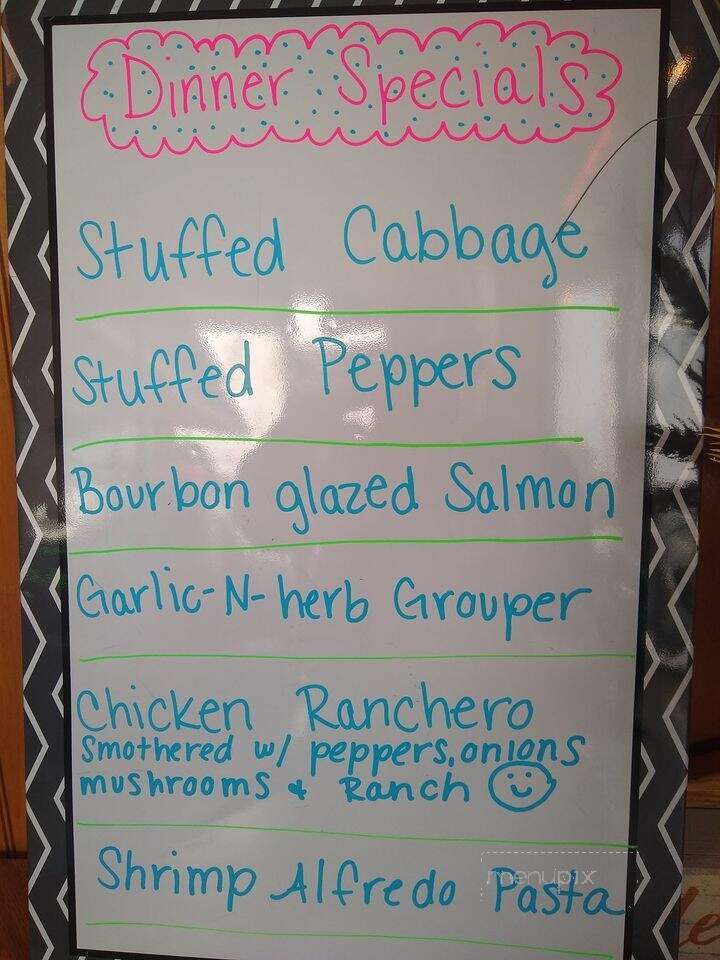 Dinner Specials
Stuffed Cabbage
Stuffed Peppers
Bourbon glazed Salmon
Garlic-N-herb Grouper
Chicken Ranchero
Smothered w/ peppers, onions
mushrooms & Ranch
Shrimp Alfredo Pasta
menupix